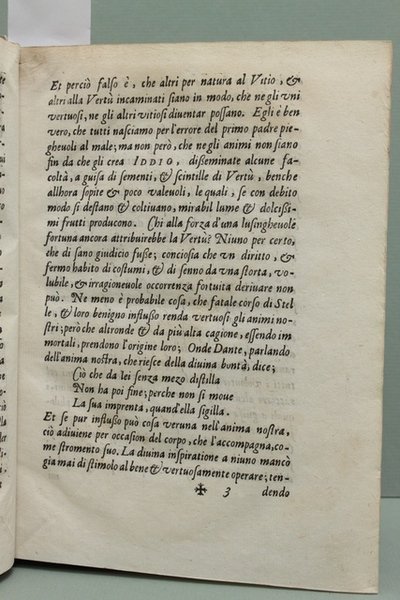 Et perciò falso è, che altri per natura al Vitio, &
altri alla Vertù incaminati siano in modo, che ne gli vni
vertuosi, ne gli altri vitiosi diuentar possano. Egli è ben
vero, che tutti nasciamo per l'errore del primo padre pie-
gheuoli al male; ma non però, che ne gli animi non siano
fin da che gli crea IDDIO, disseminate alcune fa-
coltà, a guisa di sementi, & scintille di Vertù, benche
allhora sopite & poco valeuoli, le quali, se con debito
modo si destano & coltiuano, mirabil lume & dolcissi-
mi frutti producono. Chi alla forza d'una lusingheuole
fortuna ancora attribuirebbe la Vertù? Niuno per certo,
che di sano giudicio fusse; conciosia che vn diritto, &
fermo habito di costumi, & di senno da vna storta, vo-
lubile, & irragioneuole occorrenza fortuita deriuare non
può. Ne meno è probabile cosa, che fatale corso di Stel-
le, & loro benigno influsso renda vertuosi gli animi no-
stri; però che altronde & da più alta cagione, essendo im
mortali, prendono l'origine loro; Onde Dante, parlando
dell'anima nostra, che riesce della diuina bontà, dice;
Ciò che da lei senza mezo distilla
Non ha poi fine; perche non si moue
La sua imprenta, quand'ella sigilla.
Et se pur influsso può cosa veruna nell'anima nostra,
ciò adiuiene per occasion del corpo, che l'accompagna, co-
me stromento suo. La diuina inspiratione a niuno mancò
gia mai di stimolo al bene & vertuosamente operare; ten-
✠ 3 dendo